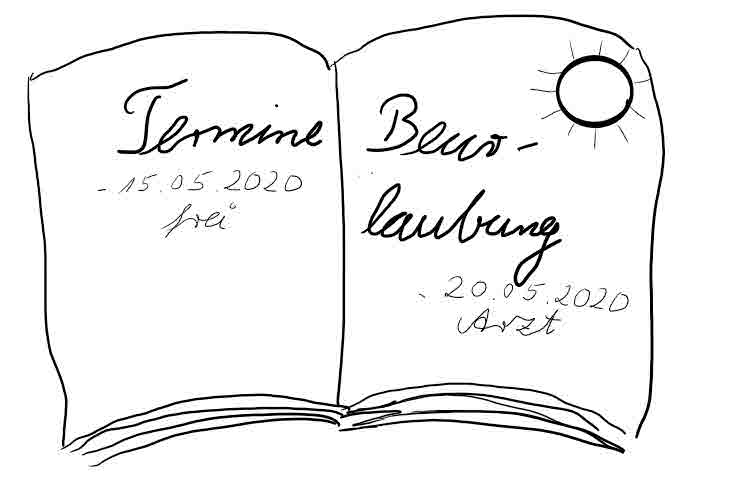 Termine
- 15.05.2020
frei
Beur-
laubung
- 20.05.2020
Arzt